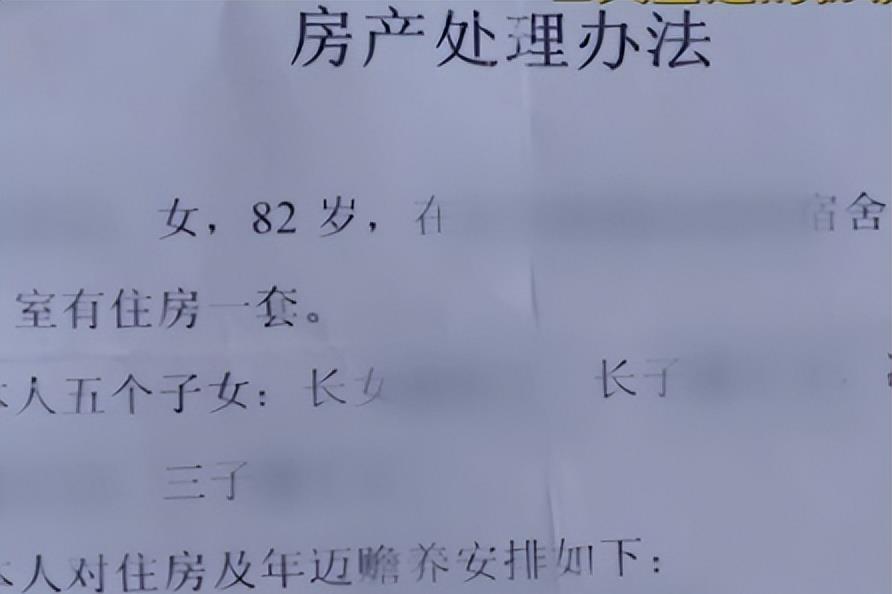 房产处理办法
女，82 岁，在 宿舍
室有住房一套。
本人五个子女：长女 长子
三子
本人对住房及年迈赡养安排如下：